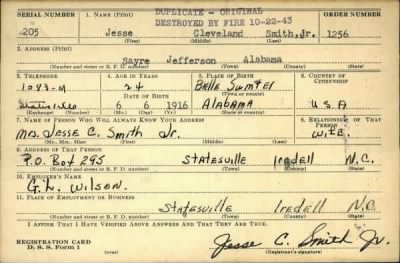 DUPLICATE - ORIGINAL
DESTROYED BY FIRE 10-22-43
SERIAL NUMBER 1. NAME (Print) ORDER NUMBER
205 Jesse Cleveland Smith, Jr. 1256
(First) (Middle) (Last)
2. ADDRESS (Print)
Sayre Jefferson Alabama
(Number and street or R. F. D. number) (Town) (County) (State)
3. TELEPHONE 4. AGE IN YEARS 5. PLACE OF BIRTH 6. COUNTRY OF CITIZENSHIP
1083-M 24 Belle Sumter
DATE OF BIRTH (Town or county)
Statesville 6 6 1916 ALABAMA U.S.A
(Exchange) (Number) (Mo.) (Day) (Yr.) (State or country)
7. NAME OF PERSON WHO WILL ALWAYS KNOW YOUR ADDRESS 8. RELATIONSHIP OF THAT PERSON
Mrs. Jesse C. Smith Jr. WIFE.
(Mr., Mrs., Miss) (First) (Middle) (Last)
9. ADDRESS OF THAT PERSON
P.O. Box 295 STATESVILLE Iredell N.C.
(Number and street or R. F. D. number) (Town) (County) (State)
10. EMPLOYER'S NAME
G. L. WILSON.
11. PLACE OF EMPLOYMENT OR BUSINESS
STATESVILLE IREDELL N.C
(Number and street or R. F. D. number) (Town) (County) (State)
I AFFIRM THAT I HAVE VERIFIED ABOVE ANSWERS AND THAT THEY ARE TRUE.
REGISTRATION CARD
D. S. S. Form 1
Jesse C. Smith Jr
(Registrant's signature)